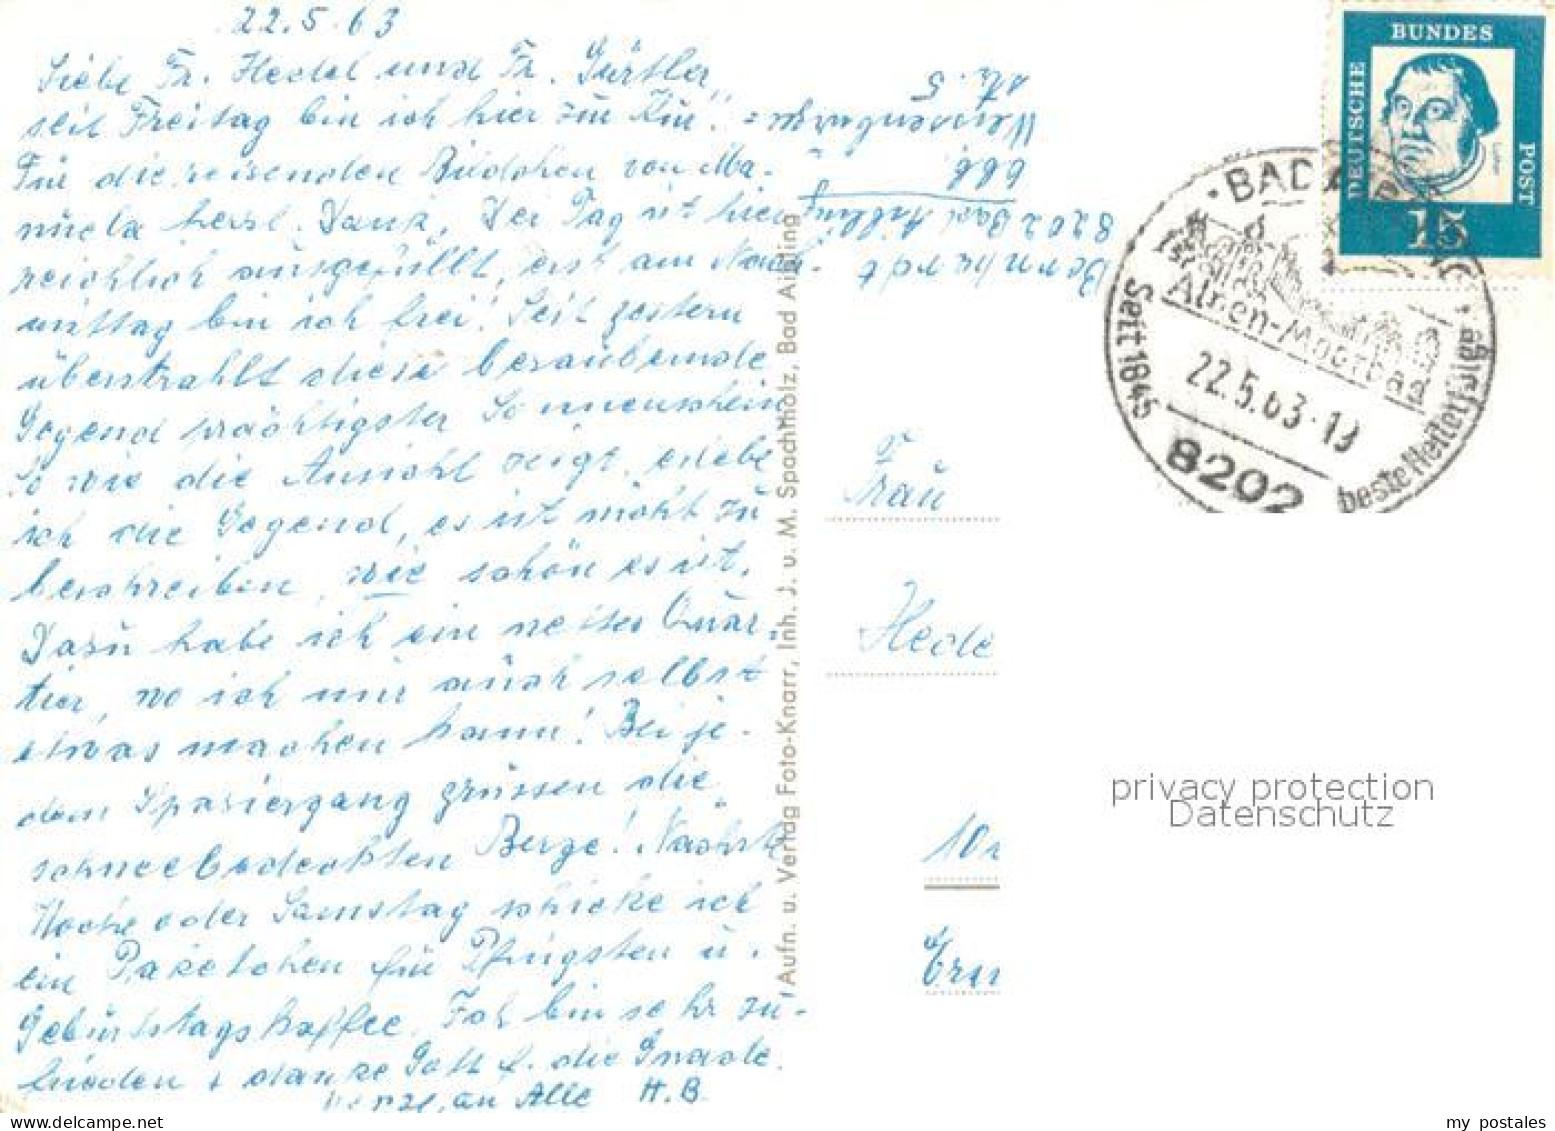 22.5.63
Liebe Fr. Hedel und Fr. Gürtler,
seit Freitag bin ich hier zur Kur.
Für die reisenden Bildchen von Ma-
nuela herzl. Dank. Der Tag ist hier
reichlich ausgefüllt, erst am Nach-
mittag bin ich frei! Seit gestern
überstrahlt diese bezaubernde
Gegend prächtigster Sonnenschein
So wie die Ansicht zeigt, erlebe
ich die Gegend, es ist nicht zu
beschreiben, wie schön es ist.
Dazu habe ich ein nettes Quar-
tier, wo ich mir auch selbst
etwas machen kann! Bei je-
dem Spaziergang grüssen die
schneebedeckten Berge! Nächste
Woche oder Samstag schicke ich
ein Paketchen für Pfingsten u.
Geburtstagskaffee. Ich bin sehr zu-
frieden + danke Gott f. die Gnade.
an Alle H.B.
Aufn. u. Verlag Foto-Knarr, Inh. J. u. M. Spachtholz, Bad Aibling
8202 Bad Aibling
str. 5
DEUTSCHE
BUNDES
POST
15
Luther
BAD AIBLING
Alpen-Moorbad
22.5.63-19
Seit 1845 beste Heilerfolge
8202
Frau
Hede
10
privacy protection
Datenschutz
my postales